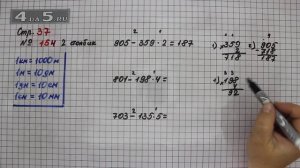 4á5.ru
Стр. 37
№ 154 2 столбик
1км = 1000 м
1м = 10 дм
1дм = 10 см
1см = 10 мм
2 1
905 - 359 · 2 = 187
2 1
801 - 198 · 4 =
2 1
703 - 135 · 5 =
1) 359
2
718
2) 905
718
187
3 3
1) 198
4
92